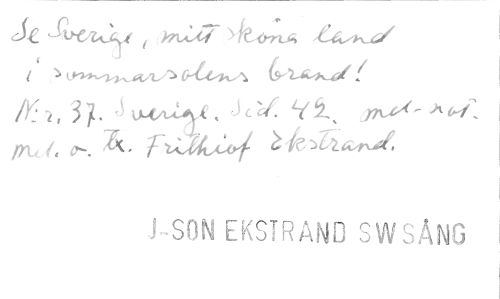 Se Sverige, mitt sköna land
i sommarsolens brand!
N:r. 37. Sverige. Sid. 42. mel-not.
mel. o. tx. Frithiof Ekstrand.
J-SON EKSTRAND SWSÅNG